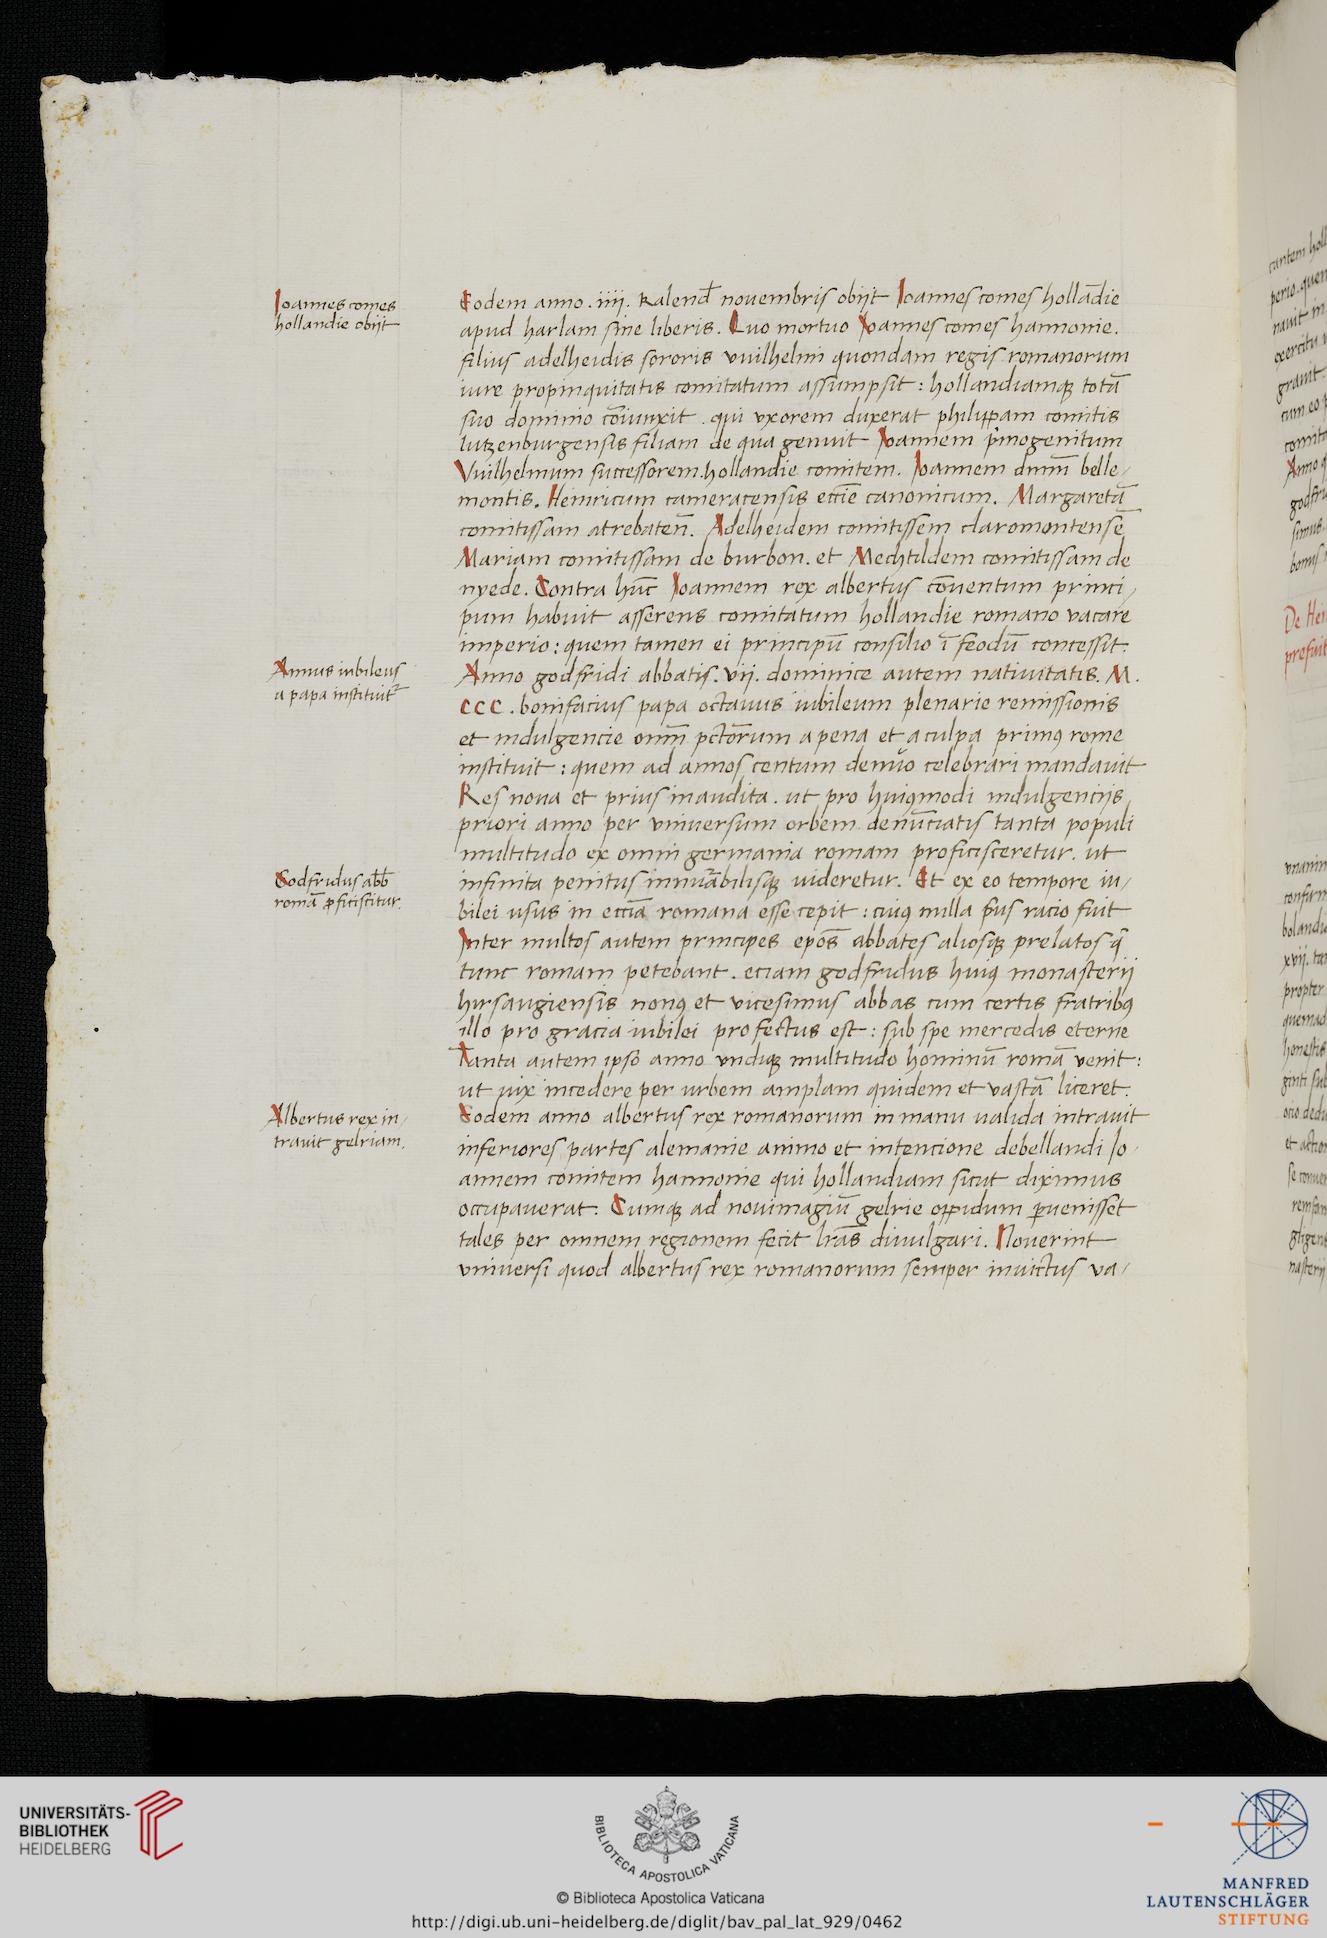 Ioannes comes
hollandie obijt
Eodem anno . iiij . kalend̄ novembris obijt Ioannes comes hollādie
apud harlam sine liberis . Quo mortuo Ioannes comes hannonie .
filius adelheidis sororis vvilhelmi quondam regis romanorum
iure propinquitatis comitatum assumpsit : hollandiamqȝ totā
suo dominio cōiunxit . qui vxorem duxerat philippam comitis
lutzenburgensis filiam de qua genuit Ioannem pͥmogenitum
Vvilhelmum successorem . hollandie comitem . Ioannem dnm̄ belle/
montis . Heinricum cameracensis eccīe canonicum . Margaretā
comitissam atrebaten̄ . Adelheidem comitissem claromontensē
Mariam comitissam de burbon . et Mechtildem comitissam de
nyede . Contra hūc Ioannem rex albertus cōventum princi/
pum habuit asserens comitatum hollandie romano vacare
imperio : quem tamen ei principū consilio ī feodū concessit .
Annus iubileus
a papa instituit᷑
Anno godfridi abbatis . vij . dominice autem nativitatis . M .
CCC . bonifacius papa octavus iubileum plenarie remissionis
et indulgencie om̄m pctōrum a pena et a culpa primꝰ rome
instituit : quem ad annos centum denuo celebrari mandavit
Res nova et prius inaudita . ut pro huiꝰmodi indulgencijs
priori anno per universum orbem denūciatis tanta populi
multitudo ex omni germania romam proficisceretur . ut
Godfridus abb̄
romā ꝓficiscitur .
infinita penitus innūabilisqȝ videretur . Et ex eo tempore iu/
bilei usus in eccīa romana esse cepit : cuiꝰ nulla pͥus racio fuit
Inter multos autem principes epōs abbates aliosqȝ prelatos q̄
tunc romam petebant . eciam godfridus huiꝰ monasterij
hirsaugiensis nonꝰ et vicesimus abbas cum certis fratribꝰ
illo pro gracia iubilei profectus est : sub spe mercedis eterne
Tanta autem ipso anno undiqȝ multitudo hominū romā venit :
ut vix incedere per urbem amplam quidem et vastā liceret .
Albertus rex in/
travit gelriam .
Eodem anno albertus rex romanorum in manu valida intravit
inferiores partes alemanie animo et intencione debellandi Io/
annem comitem hannonie qui hollandiam sicut diximus
occupaverat . Cumqȝ ad novimagiū gelrie oppidum ꝑvenisset
tales per omnem regionem fecit lrās divulgari . Noverint
universi quod albertus rex romanorum semper invictus va/
UNIVERSITÄTS-
BIBLIOTHEK
HEIDELBERG
BIBLIOTECA APOSTOLICA VATICANA
© Biblioteca Apostolica Vaticana
http://digi.ub.uni-heidelberg.de/diglit/bav_pal_lat_929/0462
MANFRED
LAUTENSCHLÄGER
STIFTUNG